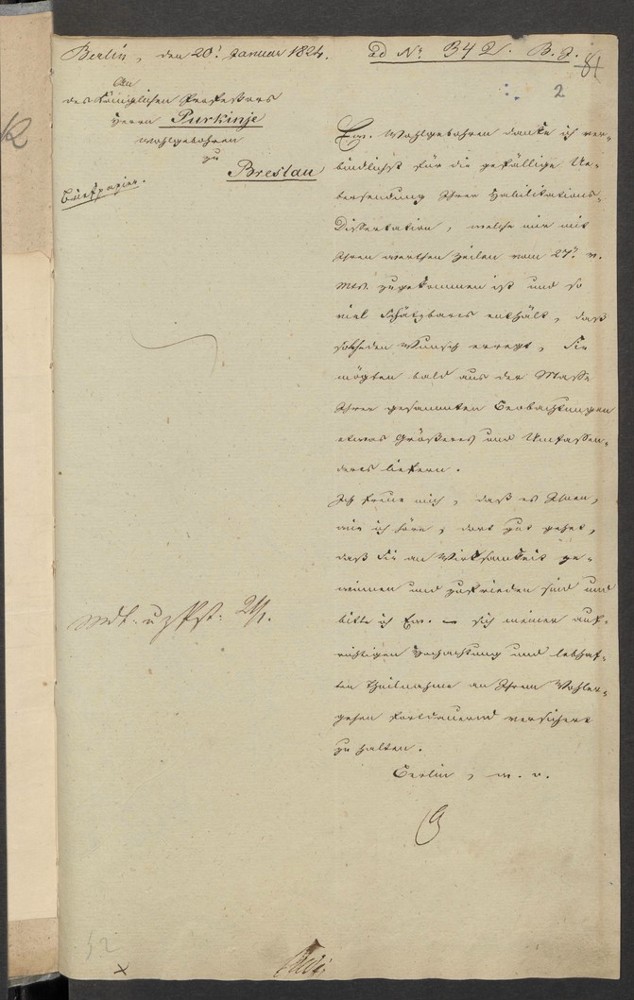 Berlin, den 20t Januar 1824.
ad No 342. B. J.
81
2
An
des Königlichen Professors
Herrn Purkinje
Wohlgebohren
zu
Breslau
Briefpapier.
Ew. Wohlgebohren danke ich ver-
bindlichst für die gefällige Ue-
bersendung Ihrer Habilitations-
Dissertation, welche mir mit
Ihren werthen Zeilen vom 27t v.
Mts. zugekommen ist und so
viel Schätzbares enthält, daß
jeden Wunsch erregt, Sie
mögten bald aus der Masse
Ihrer gesammten Beobachtungen
etwas Größeres und Umfassen-
deres liefern.
Ich freue mich, daß es Ihnen,
wie ich höre, dort gut gehet,
daß Sie an Wirksamkeit ge-
winnen und zufrieden sind und
bitte ich Ew. — sich meiner auf-
richtigen Hochachtung und lebhaf-
ten Theilnahme an Ihrem Wohler-
gehen fortdauernd versichert
zu halten.
Berlin, w. o.